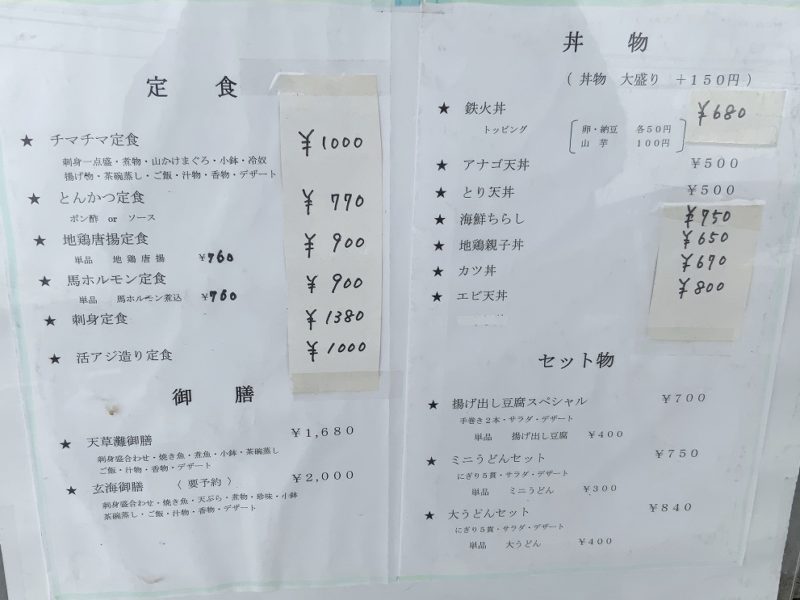 定 食
★ チマチマ定食 ¥1000
刺身一点盛・煮物・山かけまぐろ・小鉢・冷奴
揚げ物・茶碗蒸し・ご飯・汁物・香物・デザート
★ とんかつ定食 ¥770
ポン酢 or ソース
★ 地鶏唐揚定食 ¥900
単品 地鶏唐揚 ¥760
★ 馬ホルモン定食 ¥900
単品 馬ホルモン煮込 ¥760
★ 刺身定食 ¥1380
★ 活アジ造り定食 ¥1000
御 膳
★ 天草灘御膳 ¥1,680
刺身盛合わせ・焼き魚・煮魚・小鉢・茶碗蒸し
ご飯・汁物・香物・デザート
★ 玄海御膳 〈 要予約 〉 ¥2,000
刺身盛合わせ・焼き魚・天ぷら・煮物・珍味・小鉢
茶碗蒸し・ご飯・汁物・香物・デザート
丼 物
( 丼物 大盛り +150円 )
★ 鉄火丼 ¥680
トッピング 卵・納豆 各50円
山 芋 100円
★ アナゴ天丼 ¥500
★ とり天丼 ¥500
★ 海鮮ちらし ¥750
★ 地鶏親子丼 ¥650
★ カツ丼 ¥690
★ エビ天丼 ¥800
セット物
★ 揚げ出し豆腐スペシャル ¥700
手巻き2本・サラダ・デザート
単品 揚げ出し豆腐 ¥400
★ ミニうどんセット ¥750
にぎり5貫・サラダ・デザート
単品 ミニうどん ¥300
★ 大うどんセット ¥840
にぎり5貫・サラダ・デザート
単品 大うどん ¥400